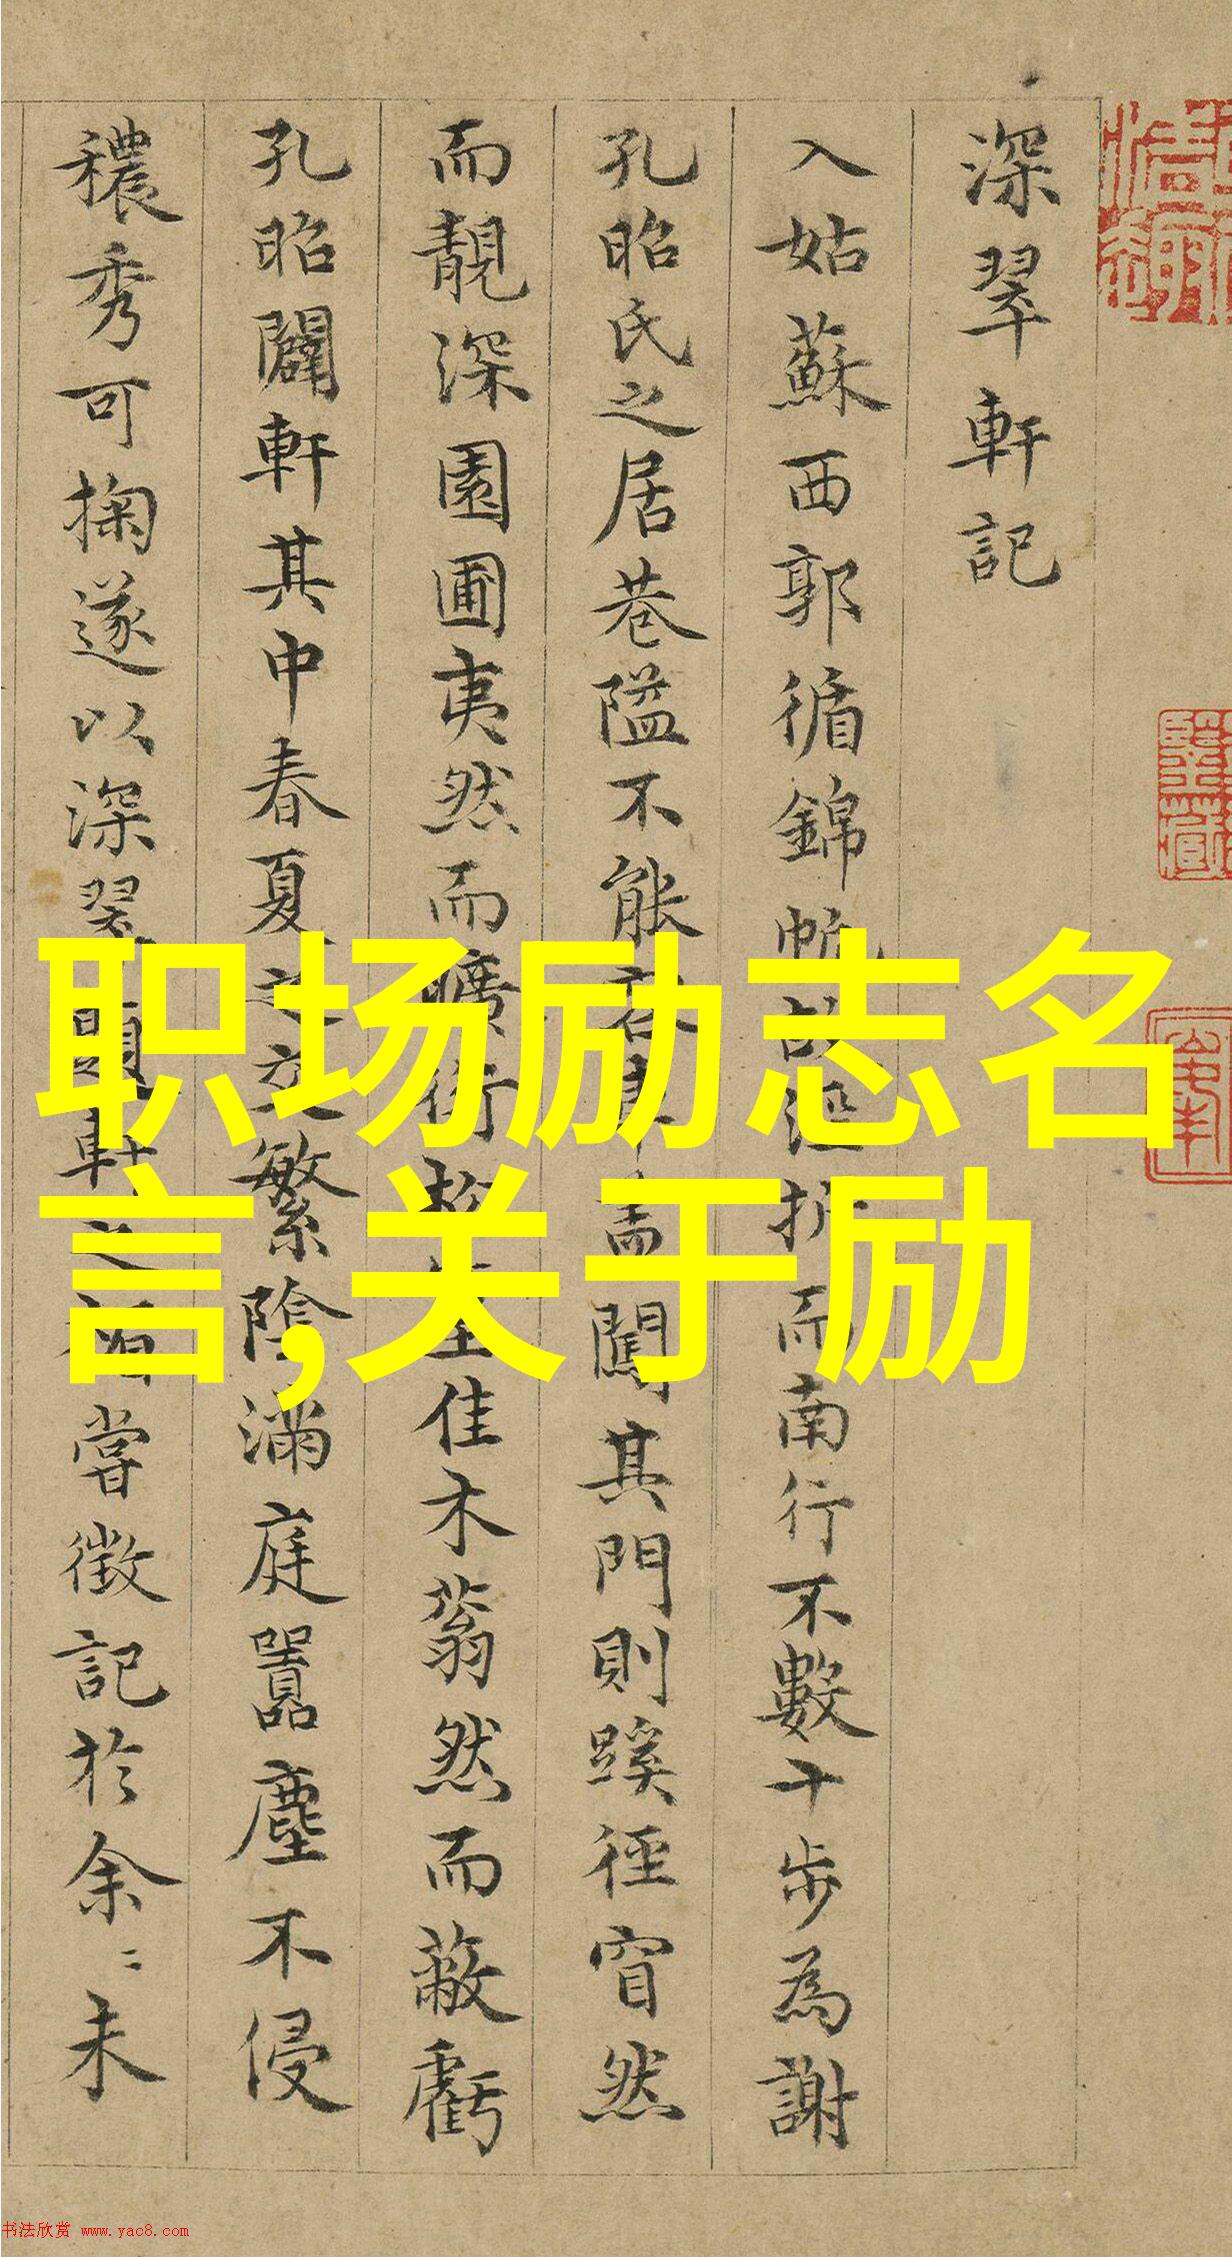 深翠軒記
入姑蘇西郭循錦帆故逕折而南行不數十步為謝
孔昭氏之居巷隘不能容車蓋闖其門則蹊徑窅然
而靚深園圃夷然而曠衍松筠佳木蓊然而蔽虧
孔昭闢軒其中春夏之交繁陰滿庭囂塵不侵
穠秀可掬遂以深翠題軒之楣嘗徵記於余〻未
职场励志名
言,关于励
书法欣赏 www.yac8.com